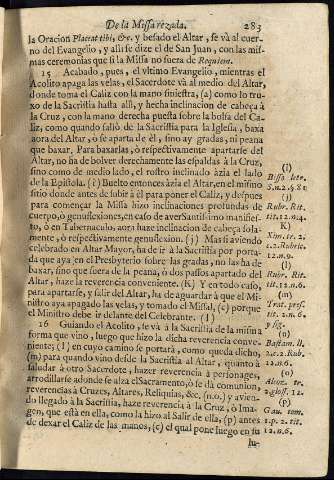 De la Missa rezada. 283
la Oracion Placeat tibi, &c. y besado el Altar, se và al cuer-
no del Evangelio, y alli se dize el de San Juan, con las mis-
mas ceremonias que si la Missa no fuera de Requiem.
15 Acabado, pues, el vltimo Evangelio, mientras el
Acolito apaga las velas, el Sacerdote và al medio del Altar,
donde toma el Caliz con la mano siniestra, (a) como lo tru-
xo de la Sacristia hasta alli, y hecha inclinacion de cabeça à
la Cruz, con la mano derecha puesta sobre la bolsa del Ca-
liz, como quando saliò de la Sacristia para la Iglesia, baxa
aora del Altar, ò se aparta de èl, sino ay gradas, ni peana
que baxar. Para baxarlas, ò respectivamente apartarse del
Altar, no ha de bolver derechamente las espaldas à la Cruz,
sino como de medio lado, el rostro inclinado àzia el lado
de la Epistola. (i) Buelto entonces àzia el Altar, en el mismo
sitio donde antes de subir à èl para poner el Caliz, y despues
para començar la Missa hizo inclinaciones profundas de
cuerpo, ò genuflexiones, en caso de aver Santissimo manifies-
to, ò en Tabernaculo, aora haze inclinacion de cabeça sola-
mente, ò respectivamente genuflexion. (j) Mas si aviendo
celebrado en Altar Mayor, ha de ir à la Sacristia por porta-
da que aya en el Presbyterio sobre las gradas, no las ha de
baxar, sino que fuera de la peana, ò dos passos apartado del
Altar, haze la reverencia conveniente. (K) Y en todo caso,
para apartarse, y salir del Altar, ha de aguardar à que el Mi-
nistro aya apagado las velas, y tomado el Missal, (c) porque
el Ministro debe ir delante del Celebrante. (l)
16 Guiando el Acolito, se và à la Sacristia de la misma
forma que vino, luego que hizo la dicha reverencia conve-
niente; (l) en cuyo camino se portarà, como queda dicho,
(m) para quando vino desde la Sacristia al Altar, quanto à
saludar à otro Sacerdote, hazer reverencia à personages,
arrodillarse adonde se alza el Sacramento, ò se dà comunion,
reverencias à Cruzes, Altares, Reliquias, &c. (n.o.) y avien-
do llegado à la Sacristia, haze reverencia à la Cruz, ò Ima-
gen, que està en ella, como la hizo al Salir de ella, (p) antes
de dexar el Caliz de las manos, (c) el qual pone luego en su
lu-
(i)
S.n.2.4.8.
(j)
Rubr. Rit.
tit.12.n.4.
K)
12.n.9.
(l)
Rubr. Rit.
tit.12.n.6.
(m)
y sig.
(n)
2.c.2. Rub.
12.n.6.
(o)
2.gloss.12.
(p)
Gav. tom.
1.p.2. tit.
12.n.6.